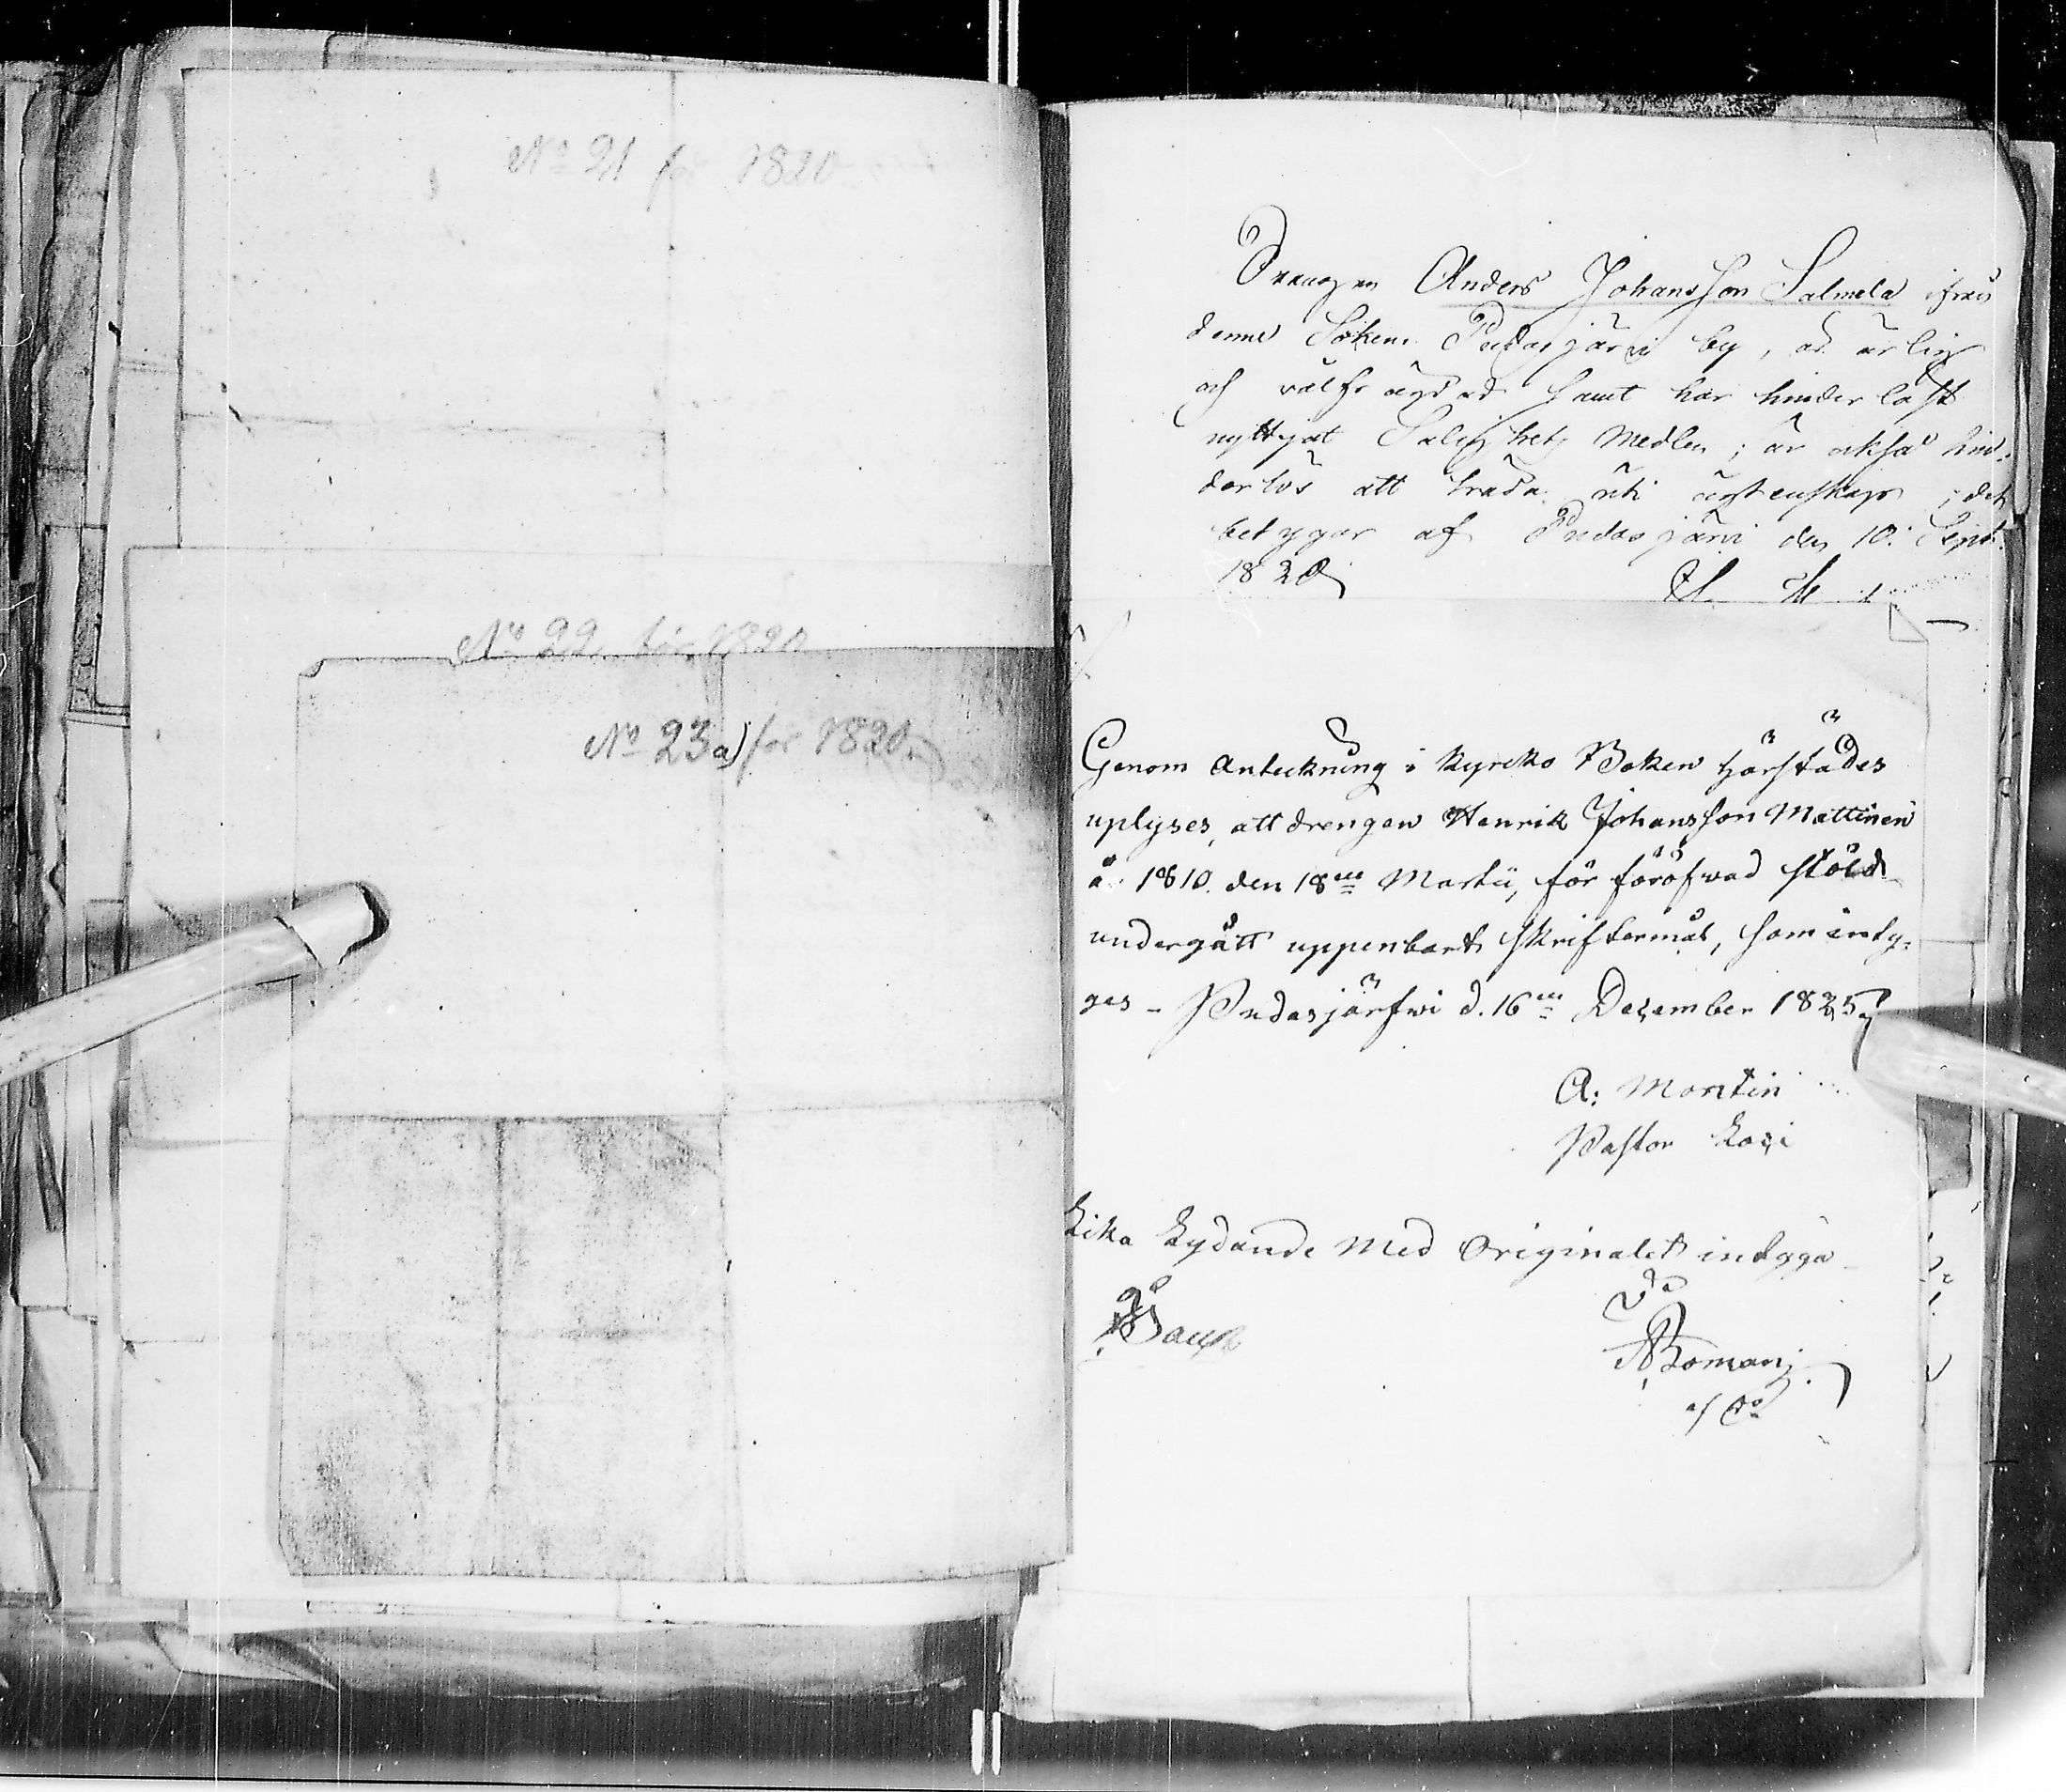 No 21 för 1820
No 22 för 1820
No 23 a) för 1820.
Drængen Anders Johansson Salmela ifrån
denne Soken Pudasjärvi by, är ärlig
och välfrägdad samt har hinderlöst
nyttjat Salighets Medlen; är också hin:
derlös att träda uti ägtenskap; det
betygar af Pudasjärvi den 10. Sept.
1820
Genom Anteckning i Kyrcko Boken härstädes
uplyses, att drengen Henrik Johansson Mattinen
år 1810. den 18de Martii, för föröfwad stöld
undergått uppenbart skriftermål, som inty:
gas - Pudasjärfwi d. 16de December 1825
A: Montin
Pastor Loci
Lika Lydande Med Originalet intyga